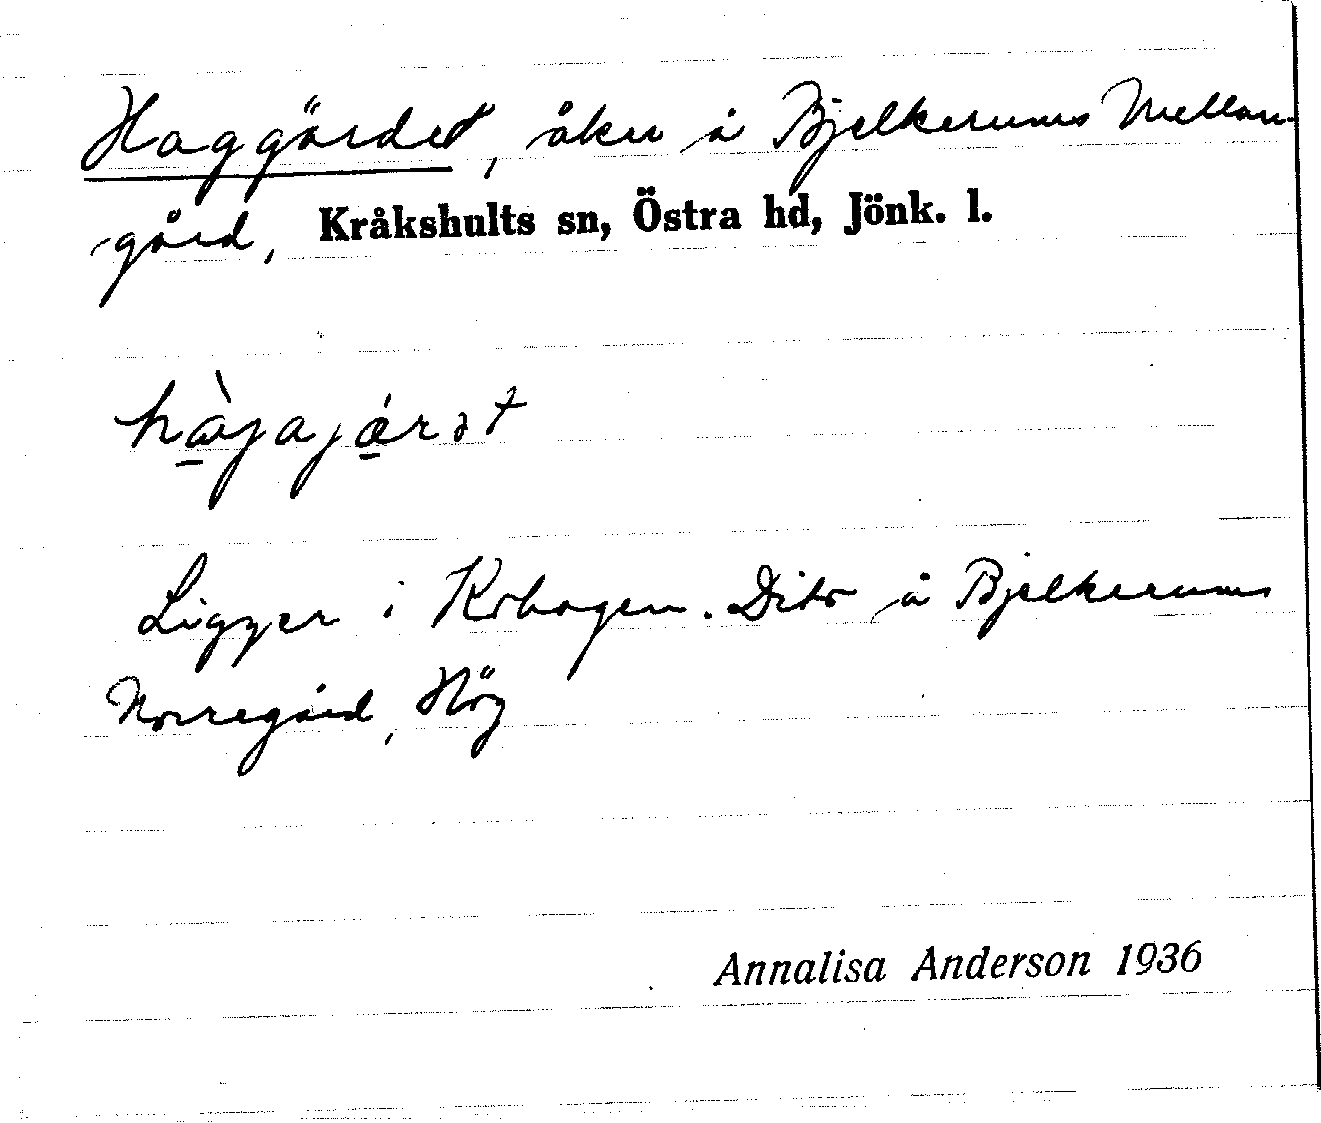 Haggärdet, åker å Bjelkerums Mellan-
gård, Kråkshults sn, Östra hd, Jönk. l.
Ligger i Kohagen. Dito å Bjelkerums
Norregård, Hög
Annalisa Anderson 1936